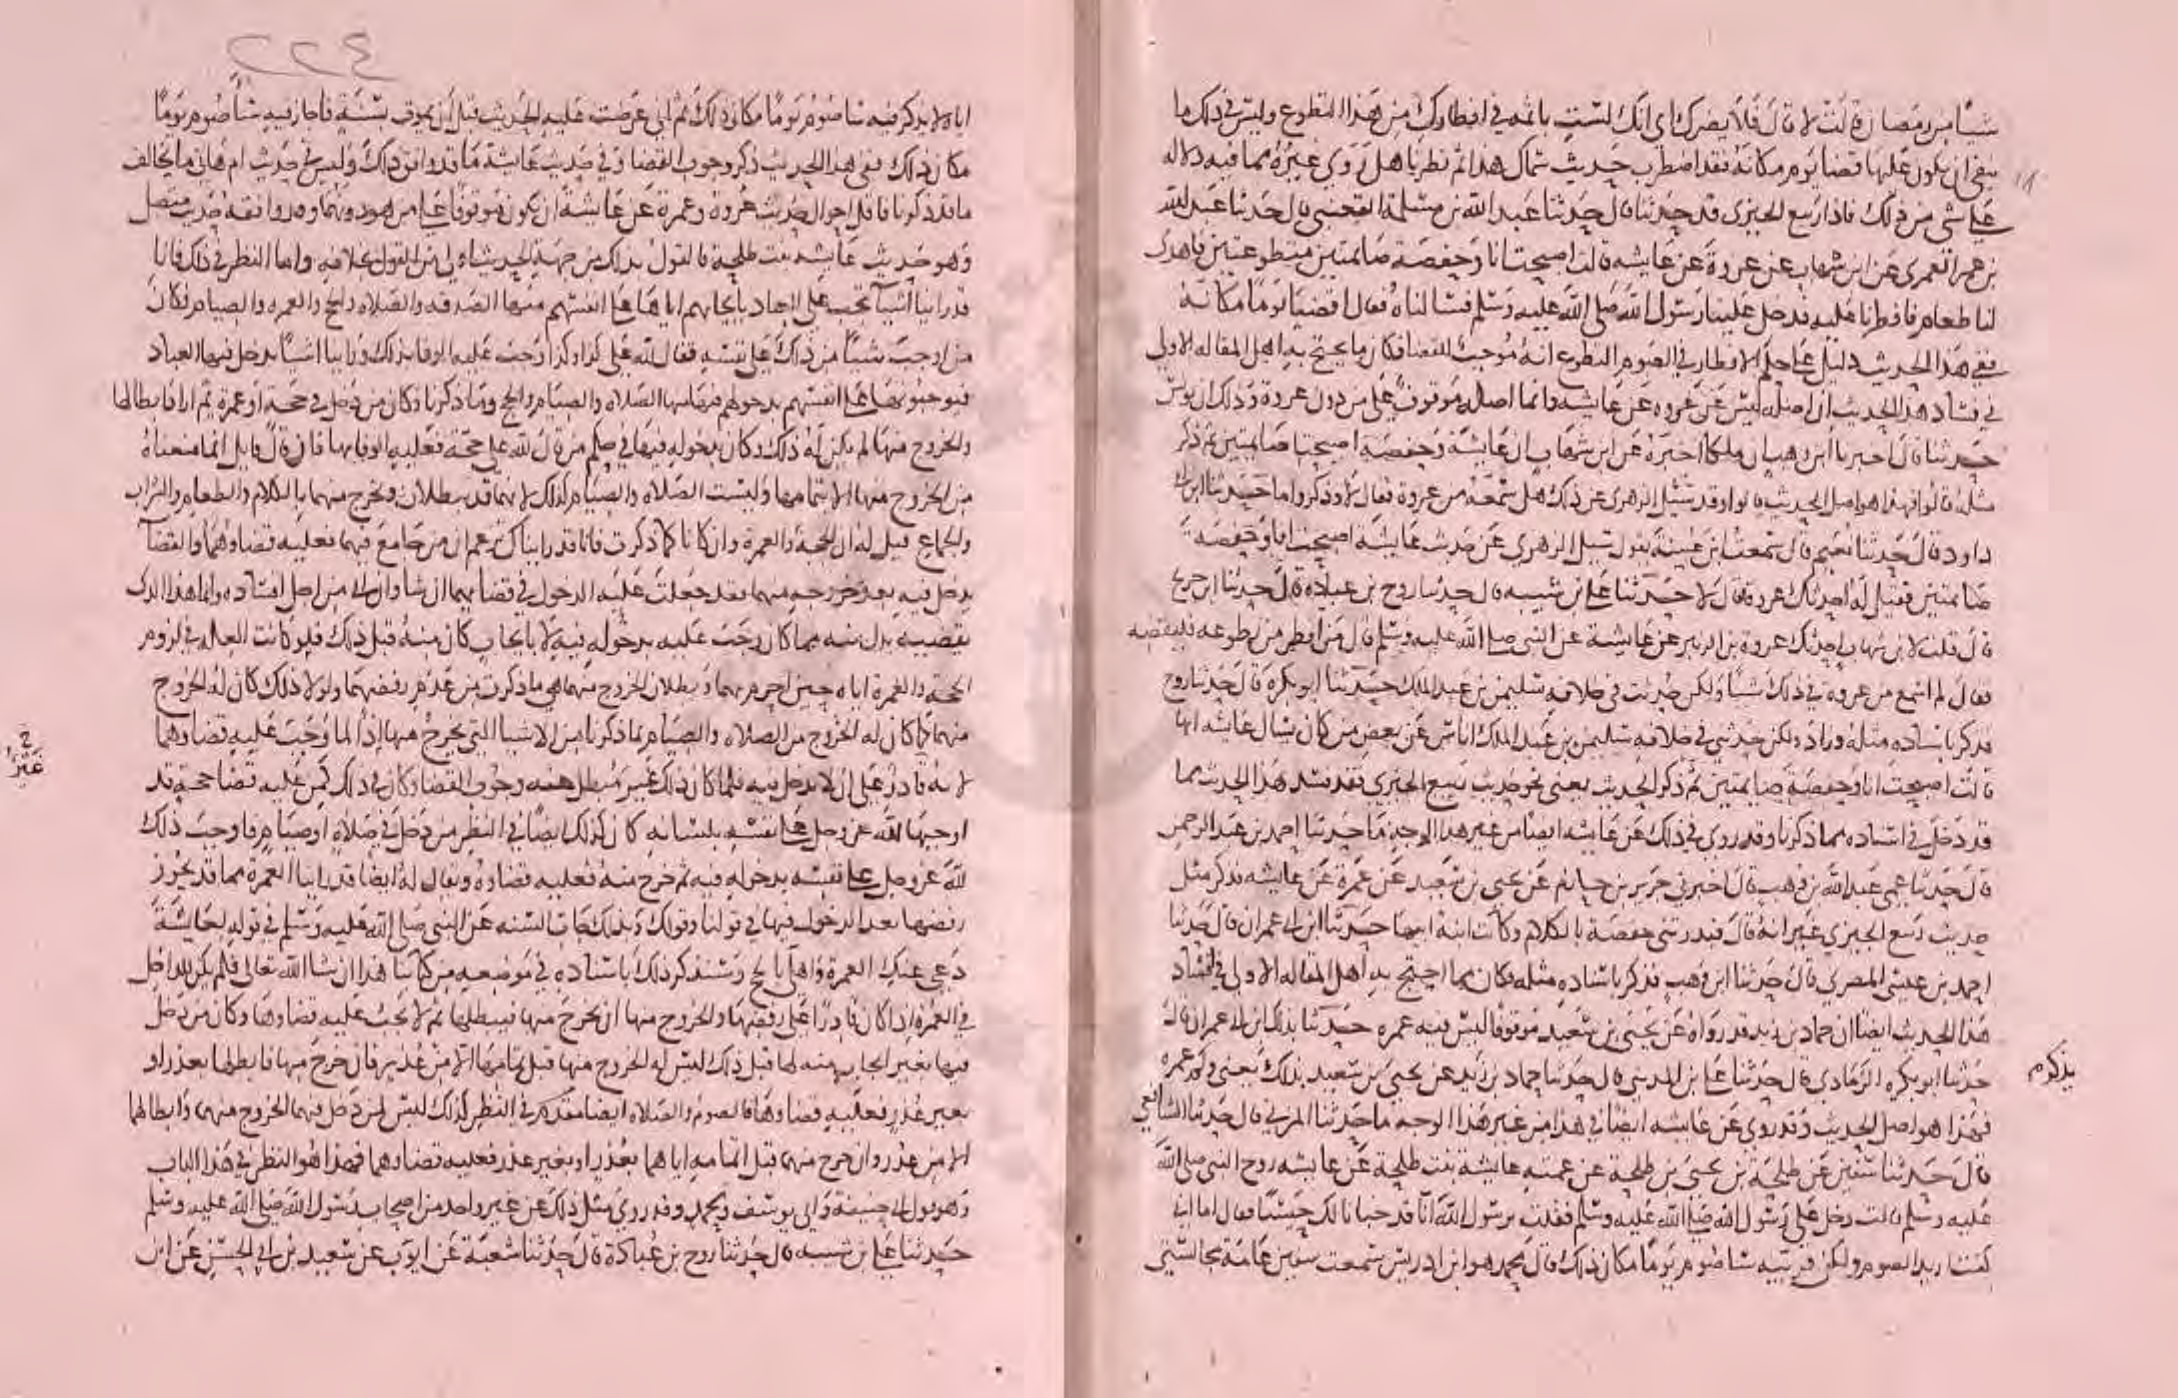 شيئا من رمضان قالت لا قال فلا يضرك اي انك لست باثمه في افطارك من هذا التطوع وليس في ذلك ما
ينفي ان يكون عليها قضا يوم مكانه فقد اضطرب حديث سماك هذا ثم نظرنا هل روي غيره مما فيه دلاله
على شي من ذلك فاذا ربيع الجيزي قد حدثنا قال حدثنا عبد الله بن مسلمة القعنبي قال حدثنا عبد الله
بن عمر العمري عن ابن شهاب عن عروة عن عايشه قالت اصبحت انا وحفصة صايمتين متطوعتين فاهدي
لنا طعام فافطرنا عليه فدخل علينا رسول الله صلى الله عليه وسلم فسالناه فقال اقضيا يوما مكانه
ففي هذا الحديث دليل على حكم الافطار في الصوم التطوع انه موجب للقضا فكان ما يحتج به اهل المقاله الاولى
في فساد هذا الحديث ان اصله ليس عن عروه عن عايشه وانما اصله موقوف على من دون عروة وذلك ان يونس
حدثنا قال اخبرنا ابن وهب ان ملكا اخبره عن ابن شهاب ان عايشة وحفصة اصبحتا صايمتين ثم ذكر
مثله قالوا فهذا هو اصل الحديث قالوا وقد سئل الزهري عن ذلك هل سمعه من عروة فقال لا وذكروا ما حدثنا ابن ابي
داود قال حدثنا نعيم قال سمعت ابن عيينة يقول سئل الزهري عن حديث عايشة اصبحت انا وحفصة
صايمتين فقيل له احدثك عروة قال لا حدثنا علي بن شيبه قال حدثنا روح بن عبادة قال حدثنا ابن جريج
قال قلت لابن شهاب احدثك عروة بن الزبير عن عايشة عن النبي صلى الله عليه وسلم قال من افطر من تطوعه فليقضه
فقال لم اسمع من عروة في ذلك شيئا ولكن حدثت في خلافه سليمن بن عبد الملك حدثنا ابو بكرة قال حدثنا روح
فذكر باسناده مثله وزاد ولكن حدثني في خلافه سليمن بن عبد الملك اناس عن بعض من كان يسال عايشه انها
قالت اصبحت انا وحفصة صايمتين ثم ذكر الحديث يعني نحو حديث ربيع الجيزي فقد فسد هذا الحديث بما
قد دخل في اسناده مما ذكرنا وقد روي في ذلك عن عايشه ايضا من غير هذا الوجه ما حدثنا احمد بن عبد الرحمن
قال حدثنا عمي عبد الله بن وهب قال اخبرني جرير بن حازم عن يحيى بن سعيد عن عمرة عن عايشه فذكر مثل
حديث ربيع الجيزي غير انه قال فبدرتني حفصة بالكلام وكانت ابنة ابيها حدثنا ابن ابي عمران قال حدثنا
احمد بن عيسى المصري قال حدثنا ابن وهب فذكر باسناده مثله فكان مما احتج به اهل المقاله الاولى في افساد
هذا الحديث ايضا ان حماد بن زيد قد رواه عن يحيى بن سعيد موقوفا ليس فيه عمره حدثنا بذلك ابن ابي عمران قال
حدثنا ابو بكره الرمادي قال حدثنا علي بن المديني قال حدثنا حماد بن زيد عن يحيى بن سعيد بذلك يعني ولم عمرة
يذكر م
فهذا هو اصل الحديث وقد روي عن عايشه ايضا في هذا من غير هذا الوجه ما حدثنا المزني قال حدثنا الشافعي
قال حدثنا سفين عن طلحة بن يحيى بن طلحة عن عمته عايشة بنت طلحة عن عايشه زوج النبي صلى الله
عليه وسلم قالت دخل علي رسول الله صلى الله عليه وسلم فقلت يرسول الله انا قد خبانا لك حيسا فقال اما اني
كنت اريد الصوم ولكن قربيه ساصوم يوما مكان ذلك قال محمد هو ابن ادريس سمعت سفين عامة مجالستي
٢٢٤
اياه لا يذكر فيه ساصوم يوما مكان ذلك ثم اني عرضت عليه الحديث قبل ان يموت بسنة فاجاز فيه ساصوم يوما
مكان ذلك ففي هذا الحديث ذكر وجوب القضا وفي حديث عايشة ما قد وافق ذلك وليس في حديث ام هاني ما يخالف
ما قد ذكرنا فاقل احوال حديث عروة وعمرة عن عايشة ان يكون موقوفا على من هو دونهما وقد وافقه حديث متصل
وهو حديث عايشة بنت طلحة فالقول بذلك من جهة الحديث اولى من القول بخلافه واما النظر في ذلك فانا
قد راينا اشيا تجب على العباد بايجابهم اياها على انفسهم منها الصدقه والصلاه والحج والعمره والصيام فكان
من اوجب شيئا من ذلك على نفسه فقال لله علي كذا وكذا وجب عليه الوفا بذلك وراينا اشيا يدخل فيها العباد
فيوجبونها على انفسهم بدخولهم فيها منها الصلاه والصيام والحج وما ذكرنا فكان من دخل في حجة او عمرة ثم اراد ابطالها
والخروج منها لم يكن له ذلك وكان بدخوله فيها في حكم من قال لله علي حجة فعليه الوفا بها فان قال قايل انما منعناه
من الخروج منها الا بتمامها وليست الصلاه والصيام كذلك لانهما قد يبطلان ويخرج منهما بالكلام والطعام والشراب
والجماع قيل له ان الحجة والعمرة وان كانا كما ذكرت فانا قد رايناك تزعم ان من جامع فيهما فعليه قضاوهما والقضا
يدخل فيه بعد خروجه منهما فقد جعلت عليه الدخول في قضايهما ان شا وان ابى من اجل افساده لهما فهذا الذي
يقضيه بدل منه مما كان وجب عليه بدخوله فيه لا بايجاب كان منه قبل ذلك فلو كانت العله في لزوم
الحجة والعمرة اياه حين احرم بهما وبطلان الخروج منهما هي ما ذكرت من عدم رفضهما ولولا ذلك كان له الخروج
منهما كما كان له الخروج من الصلاه والصيام بما ذكرنا من الاشيا التي يخرج منها اذا لما وجب عليه قضاوهما
لانه قادر على ان لا يدخل فيه فلما كان ذلك غير مبطل عنه وجوب القضا وكان في ذلك كمن عليه قضا حجة قد
اوجبها لله عز وجل على نفسه بلسانه كان كذلك ايضا في النظر من دخل في صلاة او صيام فاوجب ذلك
لله عز وجل على نفسه بدخوله فيه ثم خرج منه فعليه قضاوه ويقال له ايضا قد راينا العمرة مما قد يجوز
رفضها بعد الدخول فيها في قولنا وقولك وبذلك جات السنه عن النبي صلى الله عليه وسلم في قوله لعايشة
دعي عنك العمرة واهلي بالحج وسنذكر ذلك باسناده في موضعه من كتابنا هذا ان شا الله تعالى فلم يكن للداخل
في العمرة اذا كان قادرا على رفضها والخروج منها ان يخرج منها فيبطلها ثم لا يجب عليه قضاوها وكان من دخل
فيها بغير ايجاب منه لها قبل ذلك ليس له الخروج منها قبل تمامها الا من عذر فان خرج منها فابطلها بعذر او
بغير عذر فعليه قضاوها فالصوم والصلاه ايضا في النظر كذلك ليس لمن دخل فيهما الخروج منهما وابطالهما
الا من عذر وان خرج منهما قبل اتمامه اياهما بعذر او بغير عذر فعليه قضاوهما فهذا هو النظر في هذا الباب
وهو قول ابي حنيفة وابي يوسف ومحمد وقد روي مثل ذلك عن غير واحد من اصحاب رسول الله صلى الله عليه وسلم
حدثنا علي بن شيبه قال حدثنا روح بن عبادة قال حدثنا شعبة عن ايوب عن سعيد بن ابي الحسن عن ابن